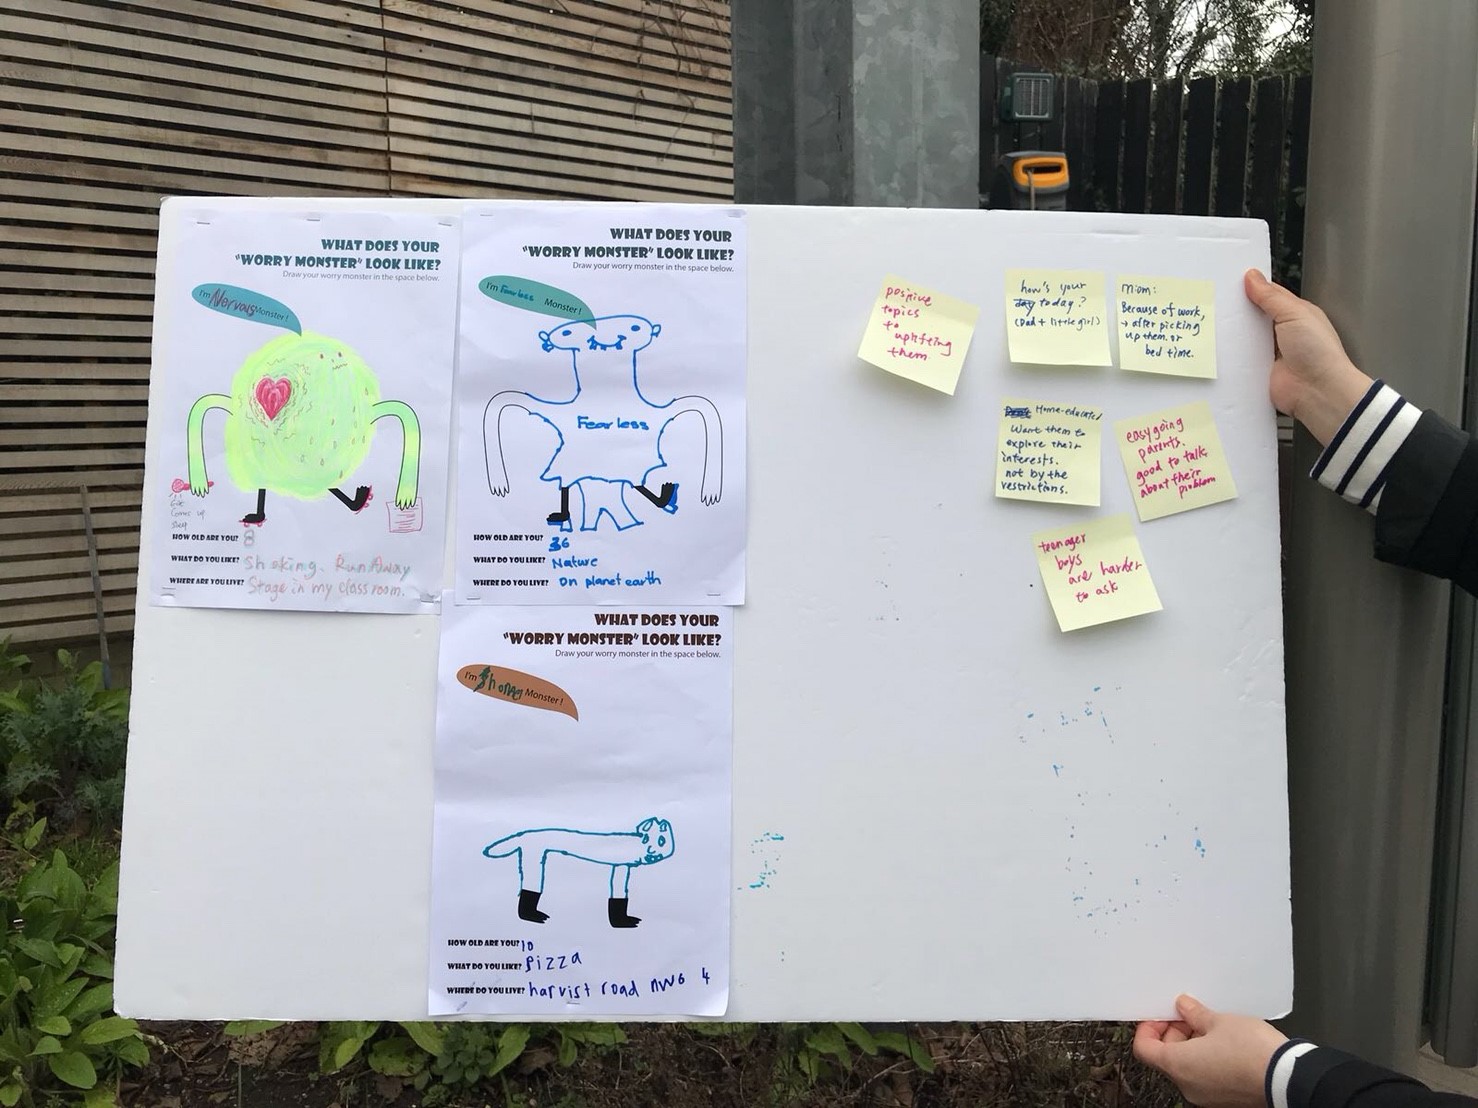 WHAT DOES YOUR
"WORRY MONSTER" LOOK LIKE?
Draw your worry monster in the space below.
I'm Nervous Monster!
Comes up
HOW OLD ARE YOU? 8
WHAT DO YOU LIKE? Shaking. Run Away
WHERE ARE YOU LIVE? Stage in my classroom.
WHAT DOES YOUR
"WORRY MONSTER" LOOK LIKE?
Draw your worry monster in the space below.
I'm Fearless Monster!
Fearless
HOW OLD ARE YOU? 36
WHAT DO YOU LIKE? Nature
WHERE DO YOU LIVE? On planet earth
WHAT DOES YOUR
"WORRY MONSTER" LOOK LIKE?
Draw your worry monster in the space below.
I'm Monster!
HOW OLD ARE YOU? 10
WHAT DO YOU LIKE? Pizza
WHERE DO YOU LIVE? harvist road nw6 4
positive
topics
to uplifting
them
how's your
day today?
(Dad + little girl)
Mom:
Because of work,
→ after picking
up them. or
bed time.
Home-educated
Want them to
explore their
interests.
not by the
restrictions.
easygoing
parents.
good to talk
about their
problem
teenager
boys
are harder
to ask